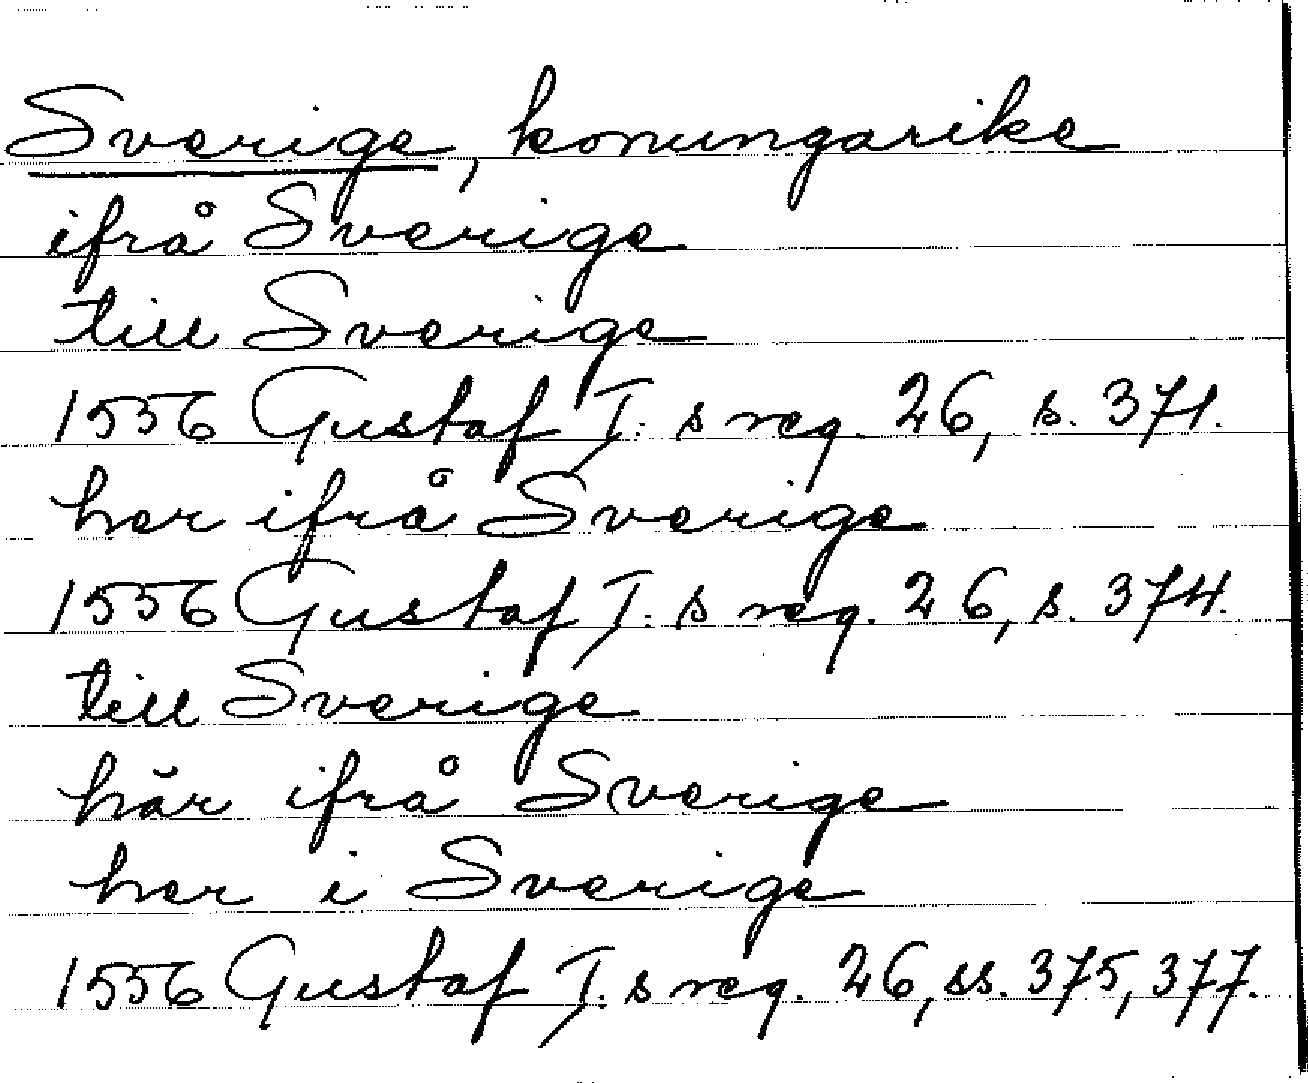 Sverige, konungarike
ifrå Sverige
till Sverige
1556 Gustaf I:s reg. 26, s. 371.
her ifrå Sverige
1556 Gustaf I:s reg. 26, s. 374.
till Sverige
här ifrå Sverige
her i Sverige
1556 Gustaf I:s reg. 26, ss. 375, 377.